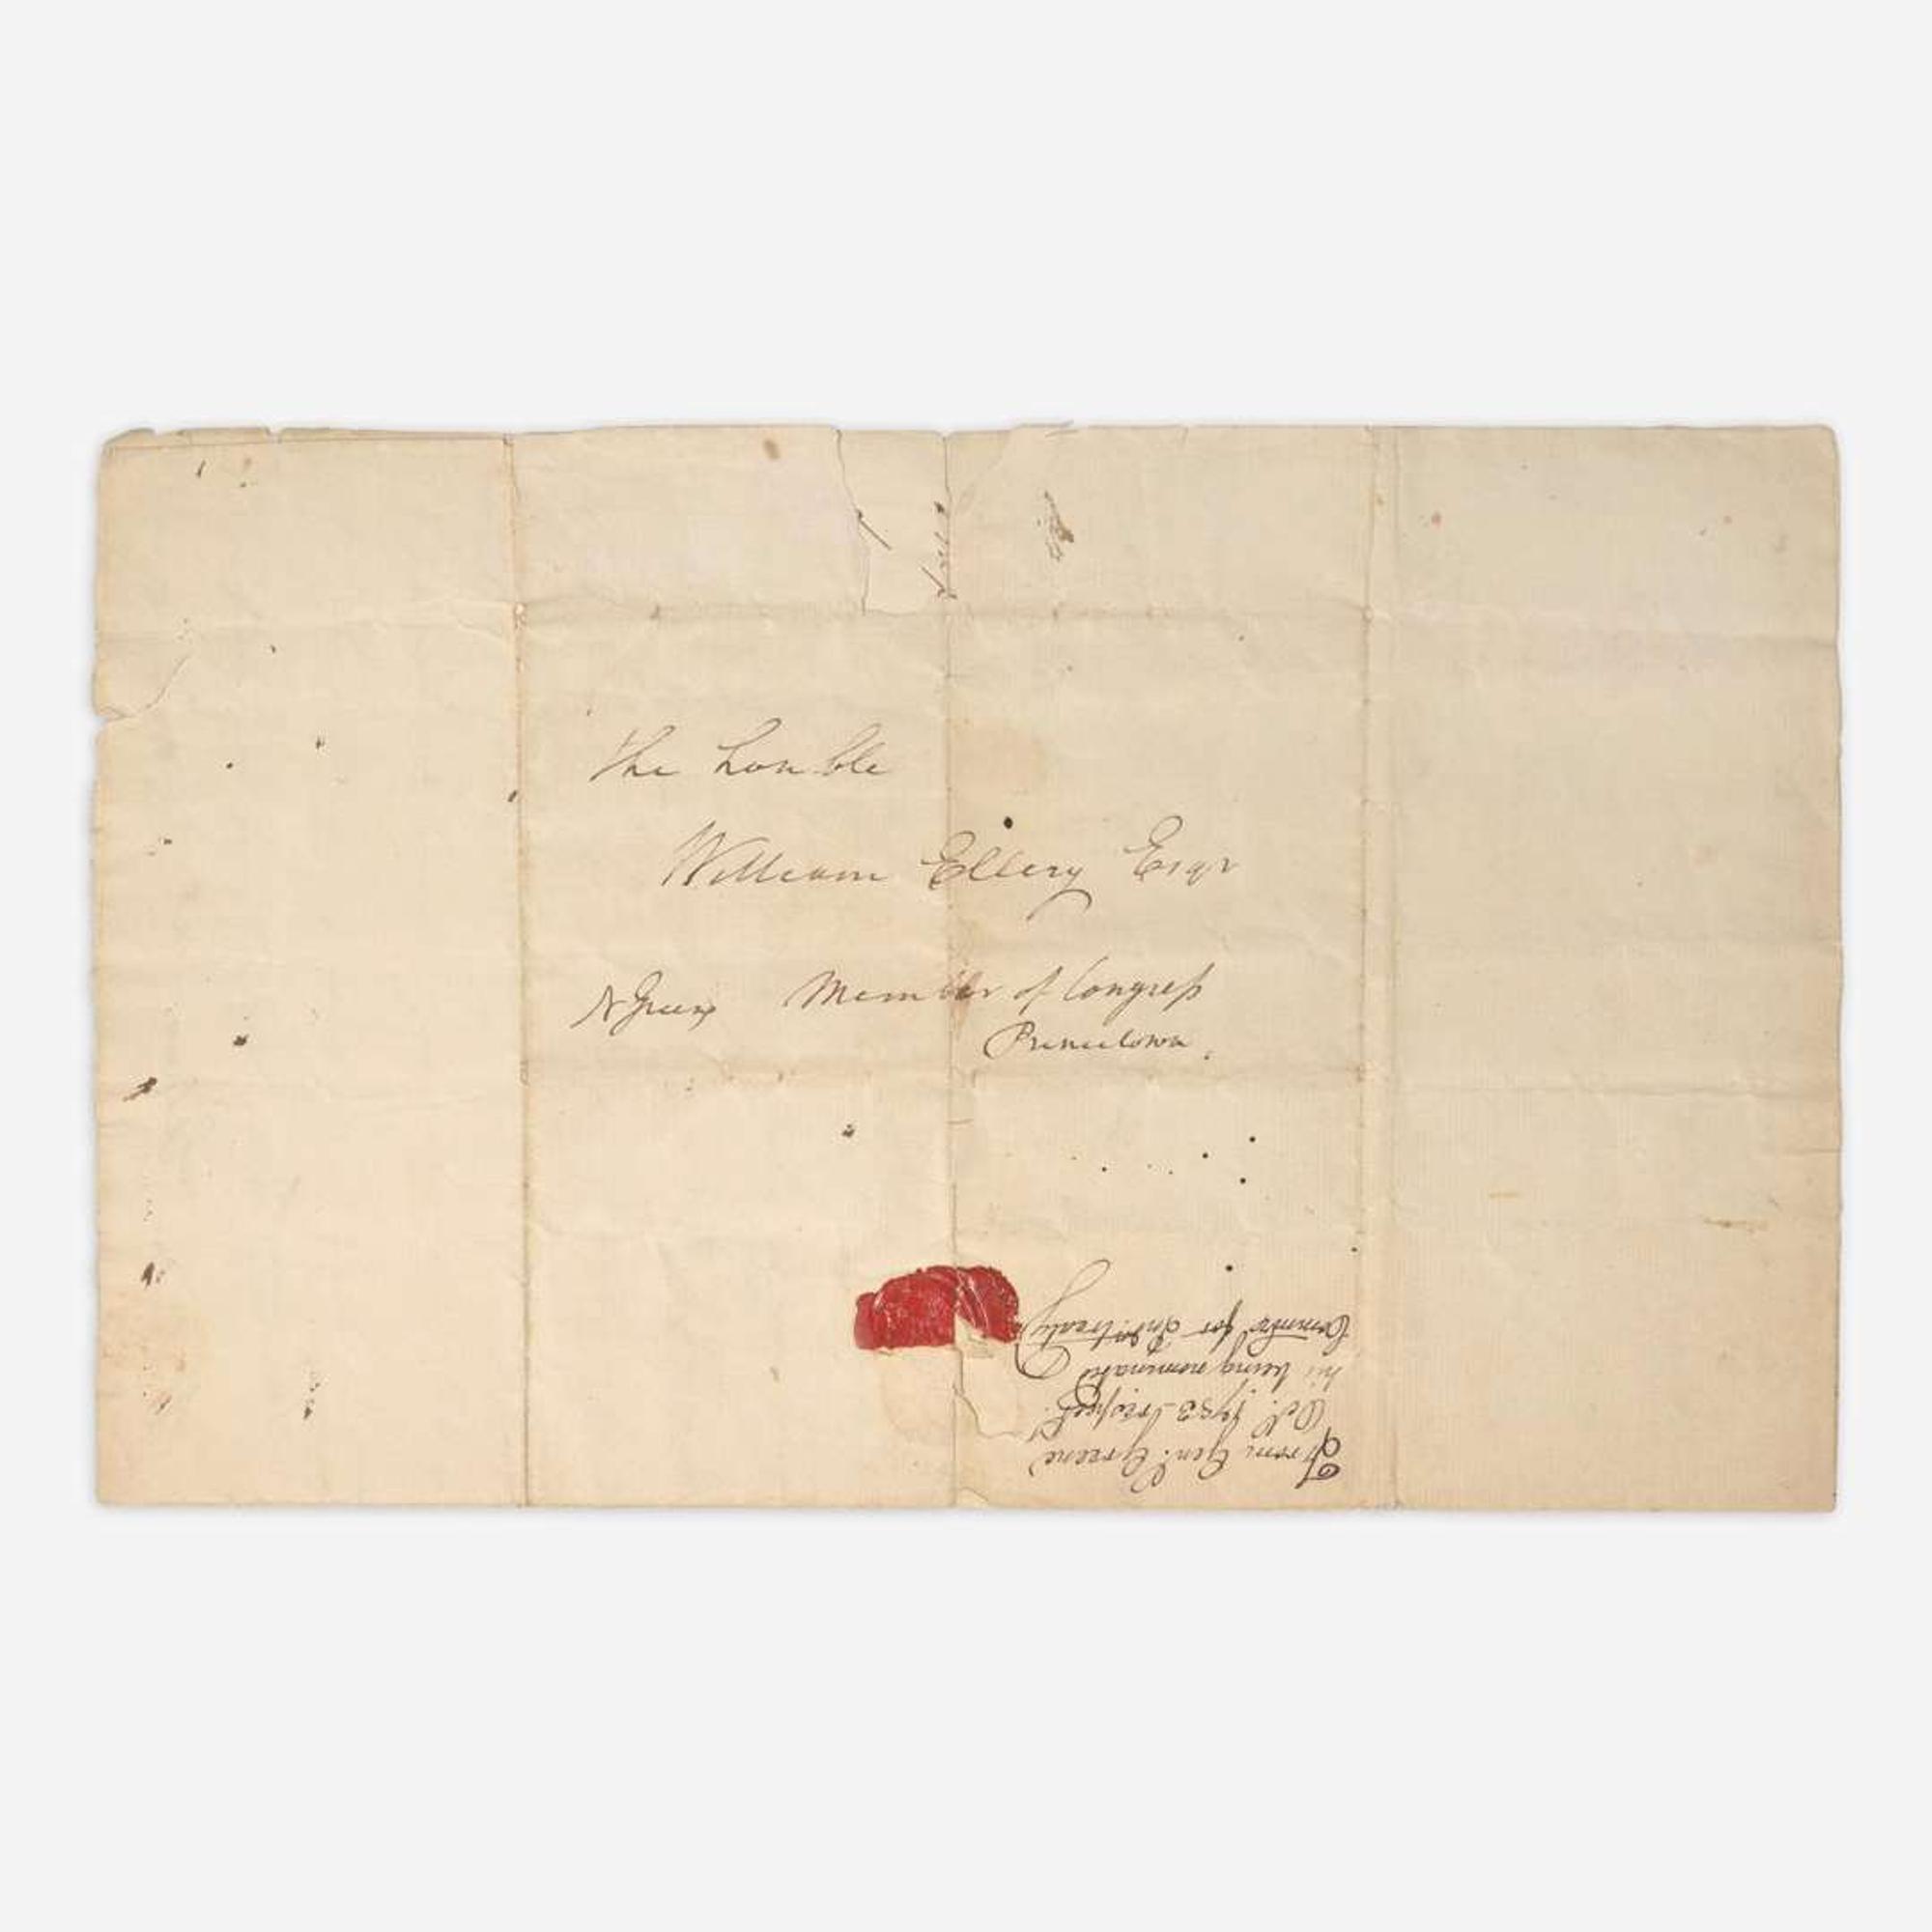 The honble
William Ellery Esqr
N Greene Member of Congress
Princetown.
From Gen: Greene
Oct. 1783 respect.
his being nominated
Comm. for Ind. treaty